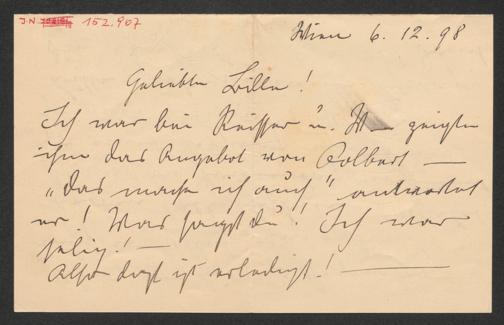 J.N. 152.907
Wien 6.12.98
Geliebte Bille!
Ich war bei Reisser u. zeigte
ihm das Angebot von Colbert —
„das mache ich auch" antwortet
er! Was sagst du! Ich war
selig! —
Also das ist erledigt! —